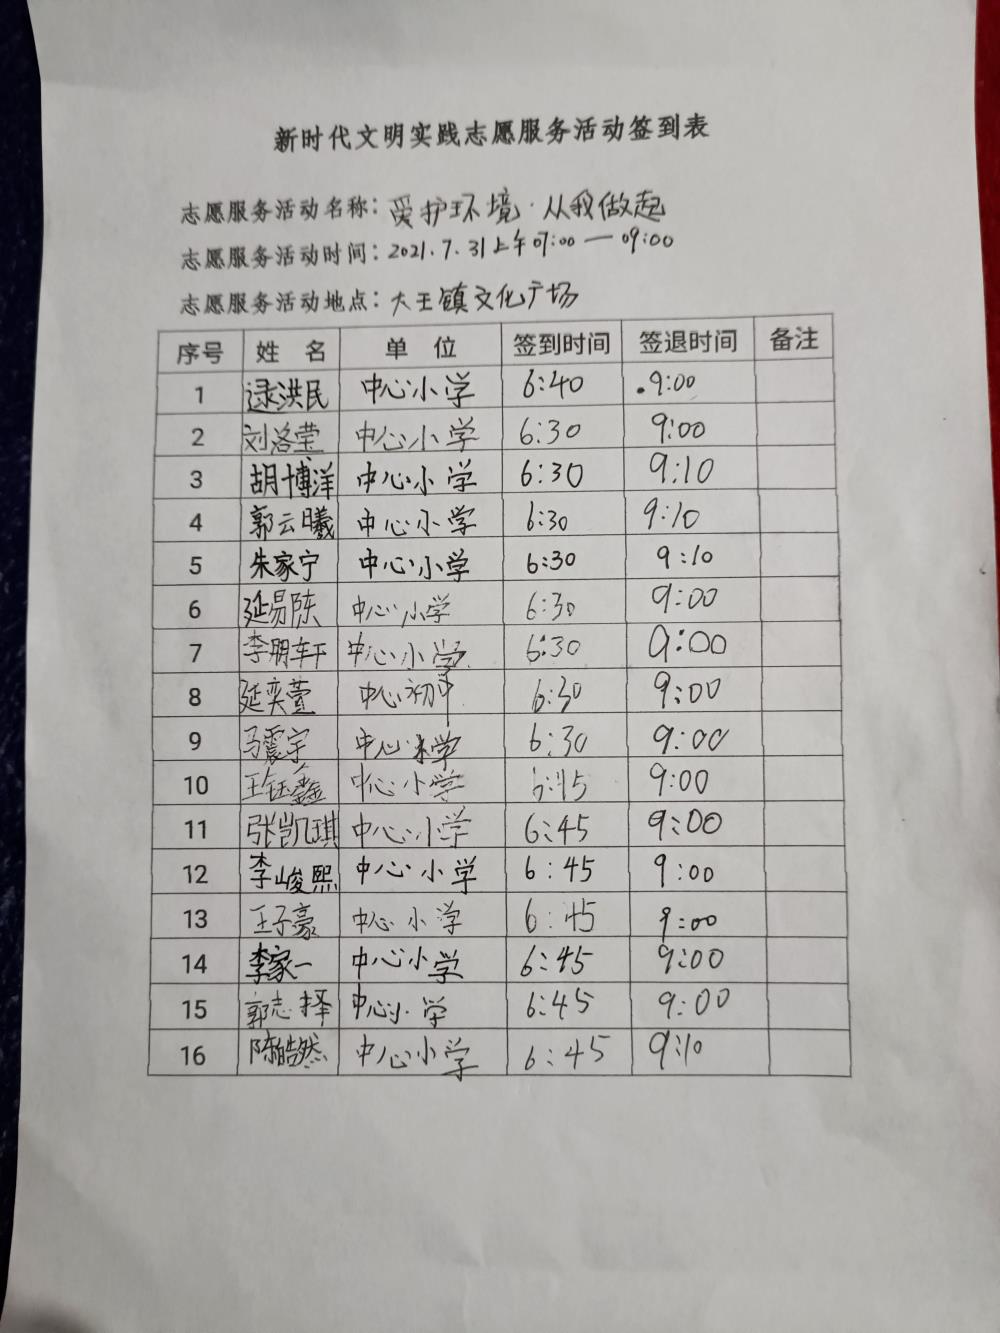 新时代文明实践志愿服务活动签到表
志愿服务活动名称：爱护环境·从我做起
志愿服务活动时间：2021.7.31上午07:00—09:00
志愿服务活动地点：大王镇文化广场
序号 姓 名 单 位 签到时间 签退时间 备注
1 逯洪民 中心小学 6:40 9:00
2 刘洛莹 中心小学 6:30 9:00
3 胡博洋 中心小学 6:30 9:10
4 郭云曦 中心小学 6:30 9:10
5 朱家宁 中心小学 6:30 9:10
6 延易陈 中心小学 6:30 9:00
7 李明轩 中心小学 6:30 9:00
8 延奕萱 中心初中 6:30 9:00
9 马震宇 中心小学 6:30 9:00
10 王钰鑫 中心小学 6:45 9:00
11 张凯琪 中心小学 6:45 9:00
12 李峻熙 中心小学 6:45 9:00
13 王子豪 中心小学 6:45 9:00
14 李家一 中心小学 6:45 9:00
15 郭志择 中心小学 6:45 9:00
16 陈皓然 中心小学 6:45 9:10